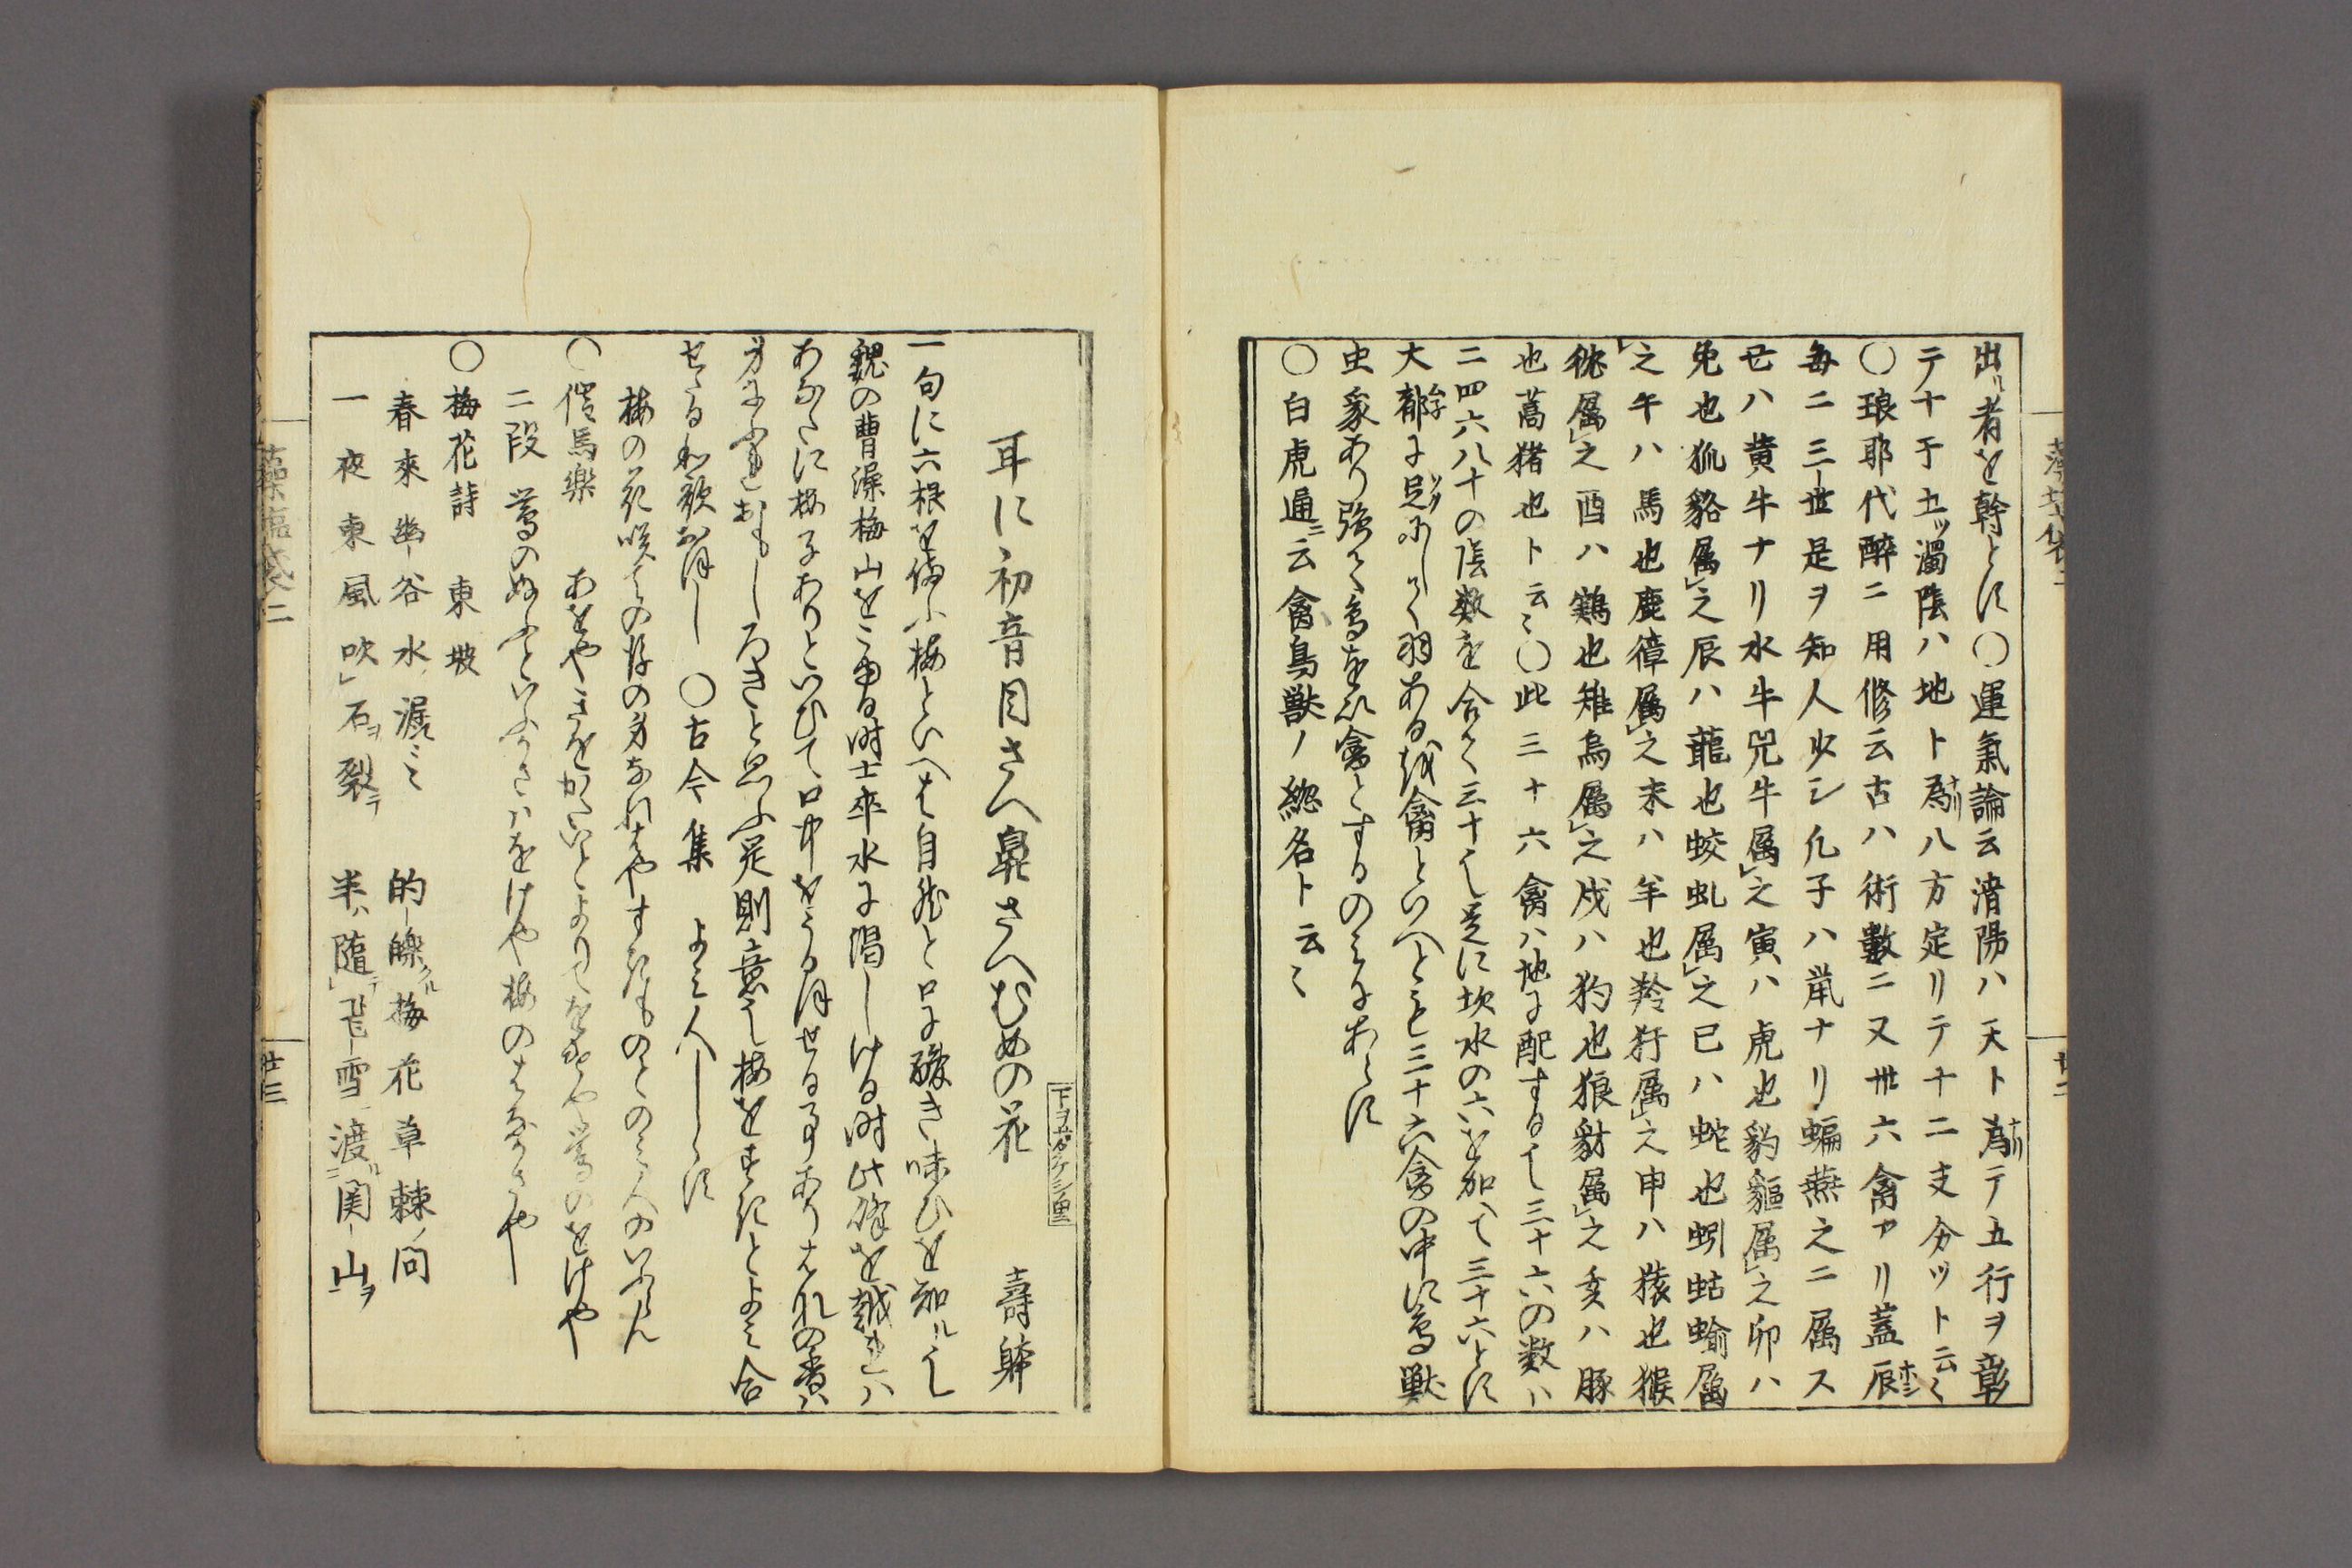 出ル者を幹とす〇運氣論云淸陽ハ天ト爲ナリテ五行ヲ彰
テ十干立ッ濁陰ハ地ト爲ナリ八方定リテ十二支分ツト云〻
〇琅耶代醉ニ用修云古ハ術數ニ又卅六禽アリ蓋辰ホシ
每ニ三ー世是ヲ知人少シ凡子ハ鼠ナリ蝙燕之ニ属ス
丑ハ黄牛ナリ水牛兕牛属之寅ハ虎也豹貙属之卯ハ
兎也狐貉属之辰ハ龍也蛟虬属之巳ハ蛇也蚓蛄蝓属
之午ハ馬也鹿獐属之未ハ羊也羚犴属之申ハ猿也猴
狖属之酉ハ鶏也雉烏属之戌ハ狗也狼豺属之亥ハ豚
也蒿猪也ト云〻〇此三十六禽ハ地に配するは三十六の数ハ
二四六八十の陰数を合て三十は是に坎水の六を加へて三十六とす
大都に足にして羽ある物禽といへとも三十六禽の中に鳥獣
虫象あり強て鳥を禽とするのみにあらす
〇白虎通ニ云禽鳥獣ノ総名ト云〻
耳に初音目さへ鼻さへむめの花　壽躰
一句に六根を備ふ梅といへは自然と口に酸き味ひを知ルは
魏の曹操梅山をこゆる時士卒水に渇しける時此嶺を越れハ
あなたに梅子ありといひて口中をうるほせる事ありそれの香ハ
身にふれおもしろきと思ふ是則意は梅をすきとよみ合
せたる和歌おほし　〇古今集　よみ人しらす
梅の花咲ての後の身なれはやすき物とのみ人のいふらん
〇催馬樂　あをやきをかたいとによりてをけや鶯のをけや
二段　鶯のぬふといふかさハをけや梅のはなかさや
〇梅花詩　東坡
春來幽谷水潺〻　的皪タル梅花草棘ノ間
一夜東風吹石ヲ裂テ　半ハ隨テ飛雪渡ル関山ヲ
藻塩袋二
廿三